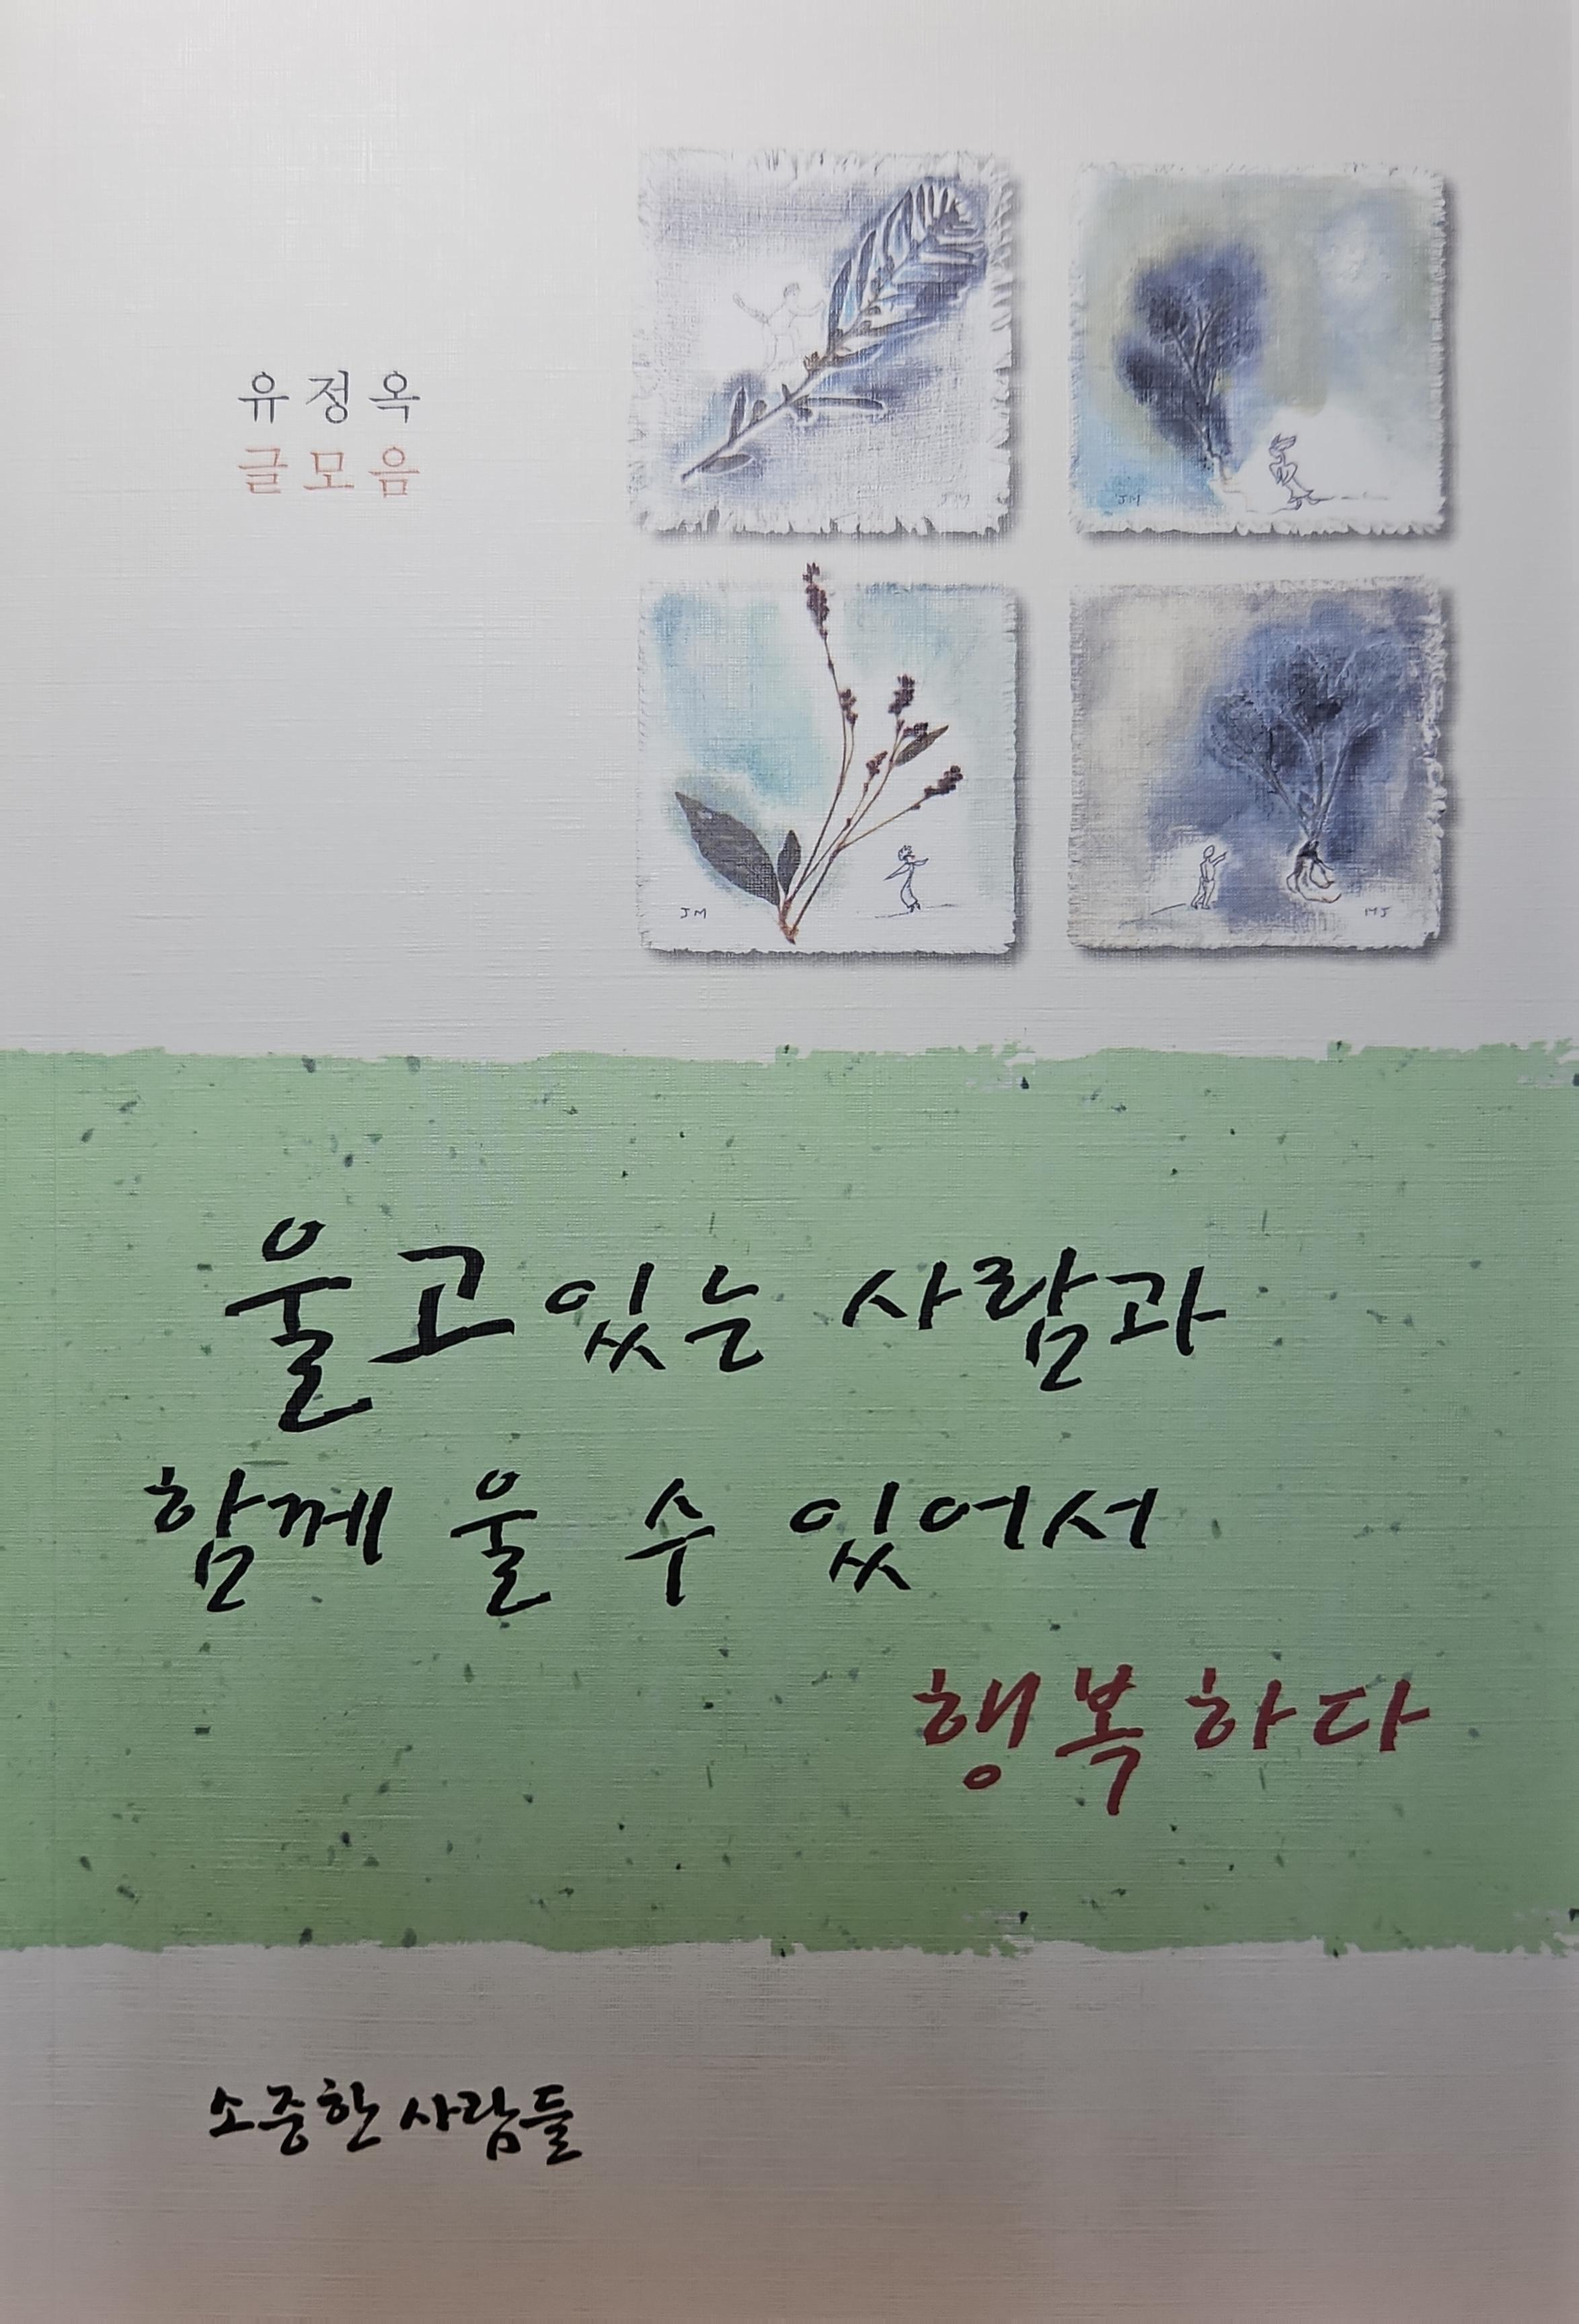 유정옥
글모음
JM
JM
JM
MJ
울고있는 사람과
함께 울 수 있어서
행복하다
소중한 사람들